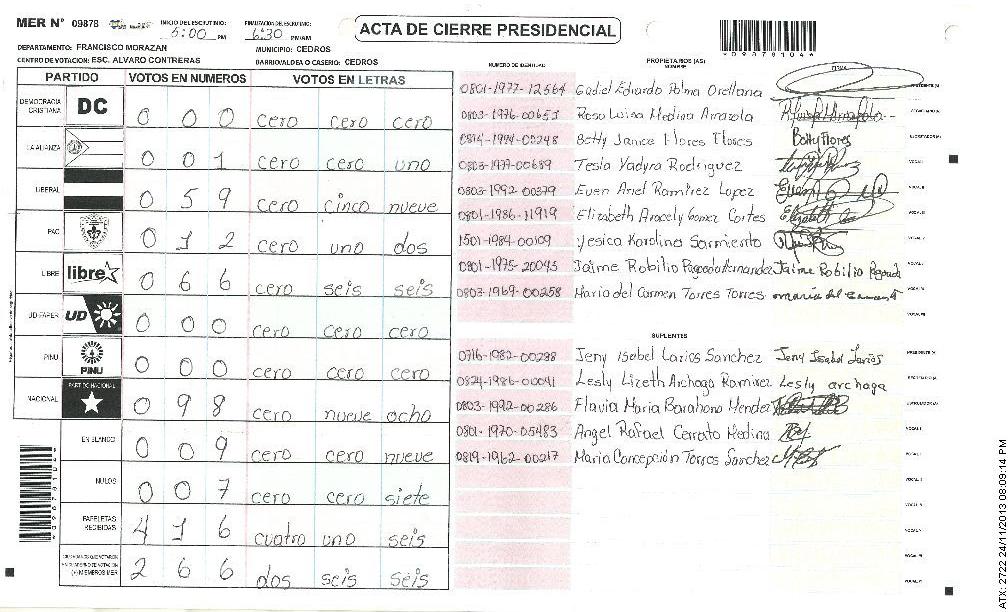 MER N° 09878
INICIO DEL ESCRUTINIO: 5:00 PM
FINALIZACION DEL ESCRUTINIO: 6:30 PM/AM
ACTA DE CIERRE PRESIDENCIAL
DEPARTAMENTO: FRANCISCO MORAZAN
MUNICIPIO: CEDROS
CENTRO DE VOTACION: ESC. ALVARO CONTRERAS
BARRIO/ALDEA O CASERIO: CEDROS
PARTIDO VOTOS EN NUMEROS VOTOS EN LETRAS
DEMOCRACIA CRISTIANA DC 0 0 0 cero cero cero
LA ALIANZA 0 0 1 cero cero uno
LIBERAL 0 5 9 cero cinco nueve
PAC 0 1 2 cero uno dos
LIBRE libre 0 6 6 cero seis seis
UD-FAPER UD 0 0 0 cero cero cero
PINU PINU 0 0 0 cero cero cero
NACIONAL PARTIDO NACIONAL 0 9 8 cero nueve ocho
EN BLANCO 0 0 9 cero cero nueve
NULOS 0 0 7 cero cero siete
PAPELETAS RECIBIDAS 4 1 6 cuatro uno seis
CIUDADANOS QUE VOTARON EN CUADERNO DE VOTACION (+) MIEMBROS MER 2 6 6 dos seis seis
NUMERO DE IDENTIDAD PROPIETARIOS (AS) NOMBRE FIRMA
0801-1977-12564 Gadiel Eduardo Palma Orellana
0803-1976-00653 Rosa Luisa Medina Amazola
0814-1994-00248 Betty Janice Flores Flores Betty Flores
0803-1977-00689 Tesla Yadyra Rodriguez
0803-1992-00379 Even Ariel Ramirez Lopez
0801-1986-11919 Elizabeth Aracely Gomez Cortes
1501-1984-00109 Yesica Karolina Sarmiento
0801-1975-20045 Jaime Robilio Pagoada Hernandez Jaime Robilio Pagoada
0803-1969-00258 Maria del Carmen Torres Torres
SUPLENTES
0716-1982-00288 Jeny Isabel Larios Sanchez Jeny Isabel Larios
0824-1986-00041 Lesly Lizeth Archaga Ramirez Lesly archaga
0803-1992-00286 Flavia Maria Barahona Mendez
0801-1970-05483 Angel Rafael Cerrato Medina
0819-1962-00217 Maria Concepción Torres Sanchez
ATX: 2722 24/11/2013 08:09:14 PM